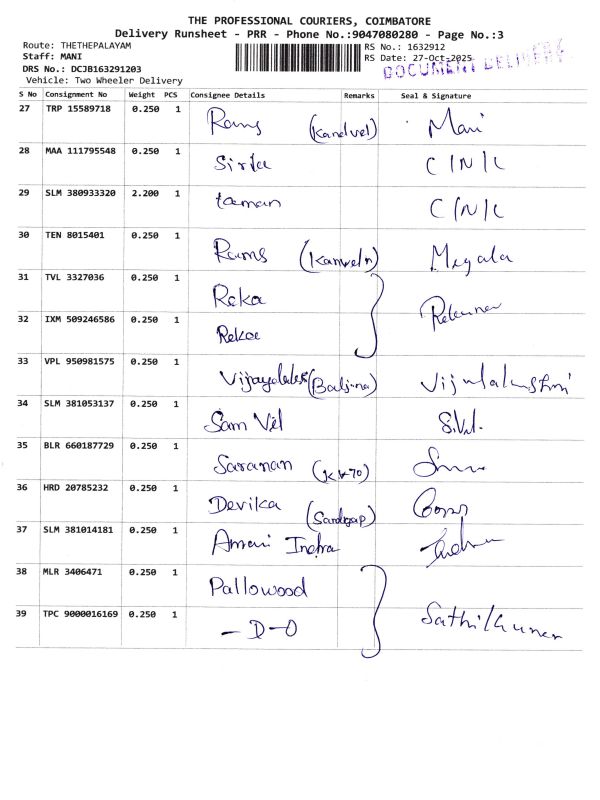 THE PROFESSIONAL COURIERS, COIMBATORE
Delivery Runsheet - PRR - Phone No.:9047080280 - Page No.:3
Route: THETHEPALAYAM RS No.: 1632912
Staff: MANI RS Date: 27-Oct-2025
DRS No.: DCJB163291203 DOCUMENT DELIVERY
Vehicle: Two Wheeler Delivery
S No Consignment No Weight PCS Consignee Details Remarks Seal & Signature
27 TRP 15589718 0.250 1 Rams (Kandvel) Mani
28 MAA 111795548 0.250 1 C/N/L
29 SLM 380933320 2.200 1 taman C/N/L
30 TEN 8015401 0.250 1 Rams Megala
31 TVL 3327036 0.250 1 Reka
32 IXM 509246586 0.250 1 Rekaa
33 VPL 950981575 0.250 1
34 SLM 381053137 0.250 1 Sam Vel S.Vel.
35 BLR 660187729 0.250 1 Saranan
36 HRD 20785232 0.250 1 Devika
37 SLM 381014181 0.250 1 Indra
38 MLR 3406471 0.250 1 Pallowood
39 TPC 9000016169 0.250 1 -D-O